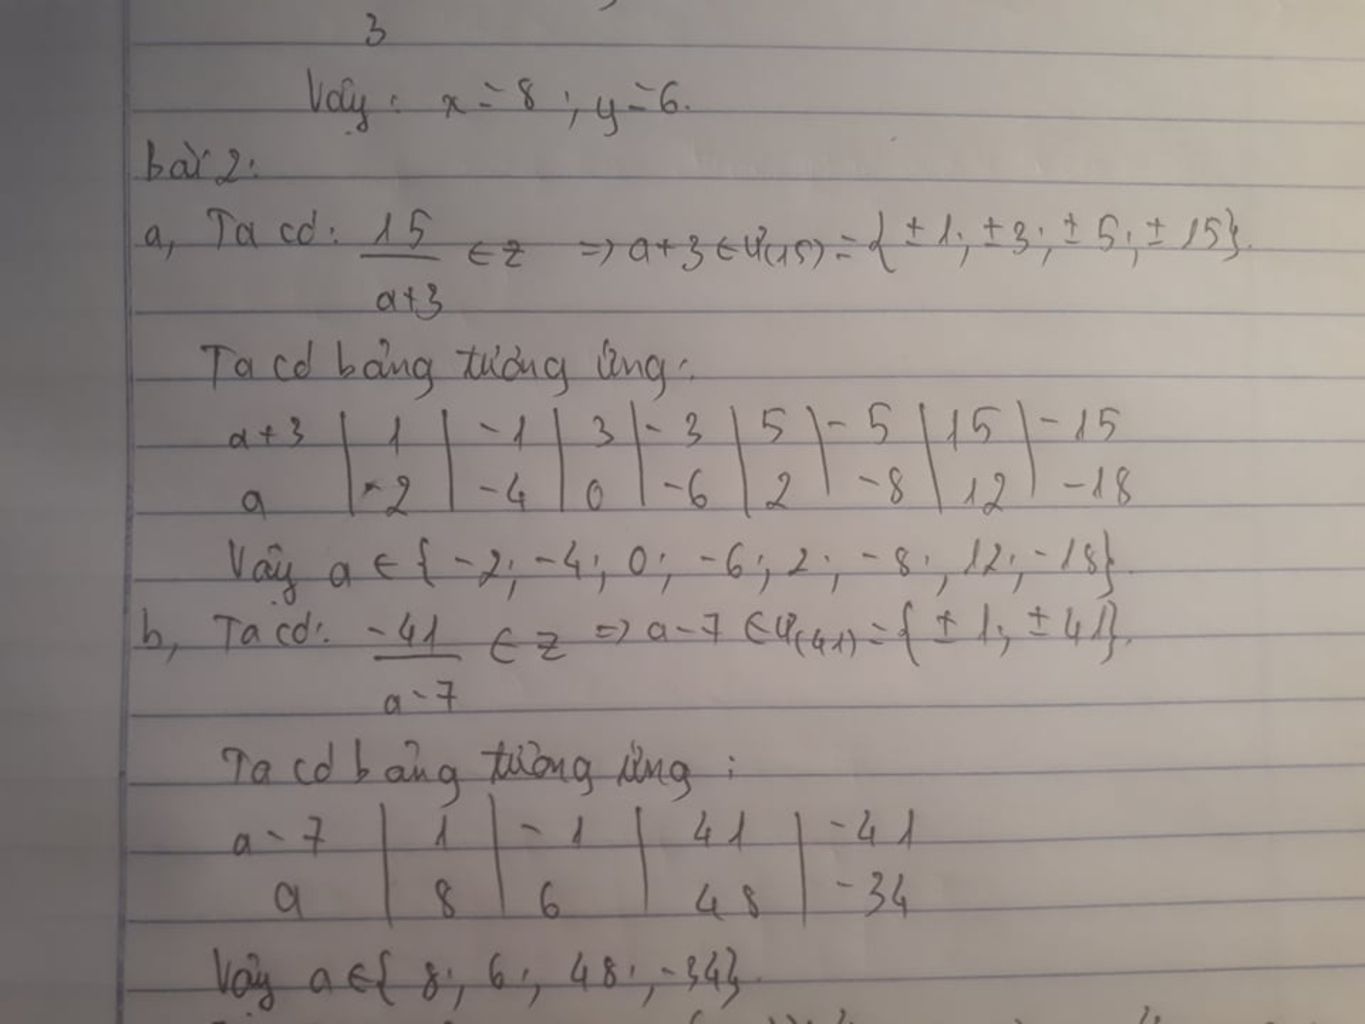 3
Vậy: x = 8 ; y = 6.
bài 2:
a, Ta có: 15/a+3 ∈ Z => a+3 ∈ Ư(15) = { ±1; ±3; ±5; ±15}.
Ta có bảng tương ứng:
a+3 | 1 | -1 | 3 | -3 | 5 | -5 | 15 | -15
a | -2 | -4 | 0 | -6 | 2 | -8 | 12 | -18
Vậy a ∈ { -2; -4; 0; -6; 2; -8; 12; -18}.
b, Ta có: -41/a-7 ∈ Z => a-7 ∈ Ư(41) = { ±1; ±41}.
Ta có bảng tương ứng:
a-7 | 1 | -1 | 41 | -41
a | 8 | 6 | 48 | -34
Vậy a ∈ { 8; 6; 48; -34}.